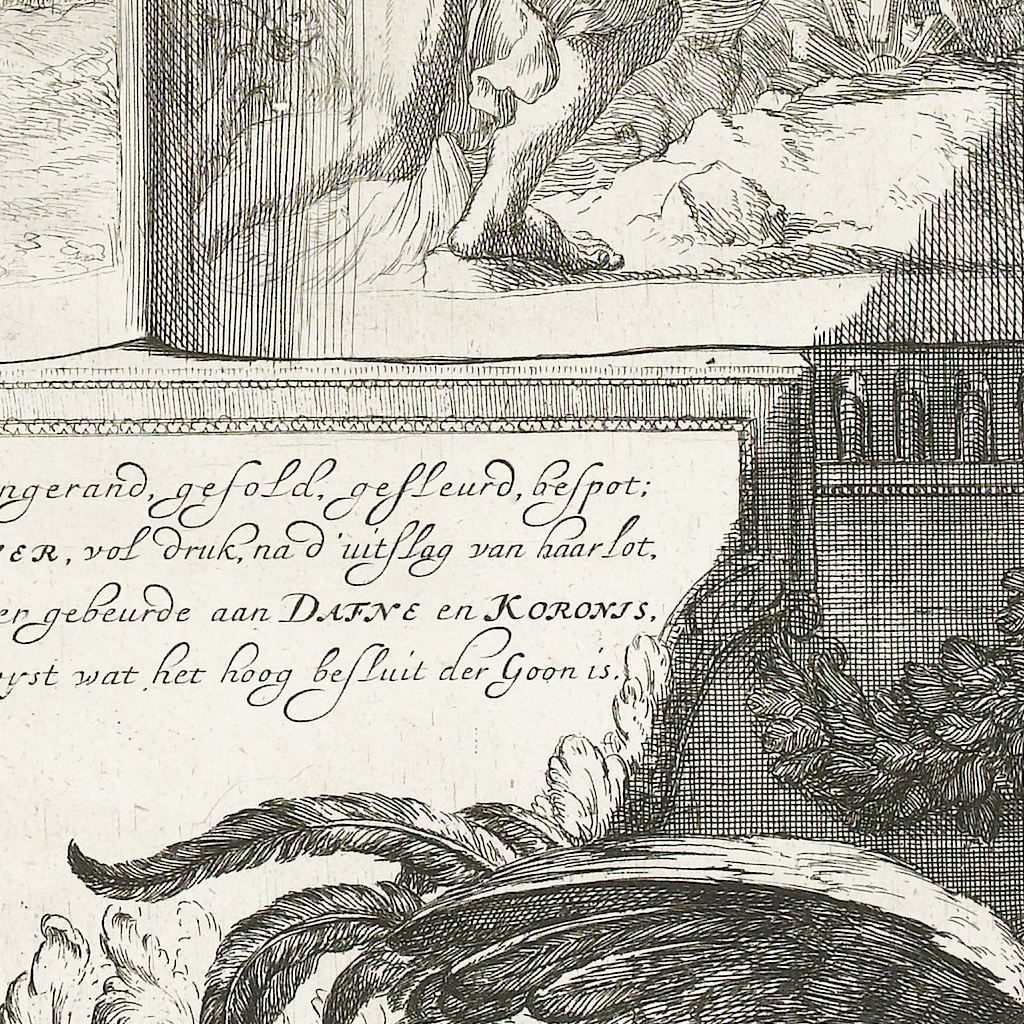 ngerand, gesold, gesleurd, bespot;
ER, vol druk, na d'uitslag van haar lot,
er gebeurde aan DAFNE en KORONIS,
rst wat het hoog besluit der Goon is.